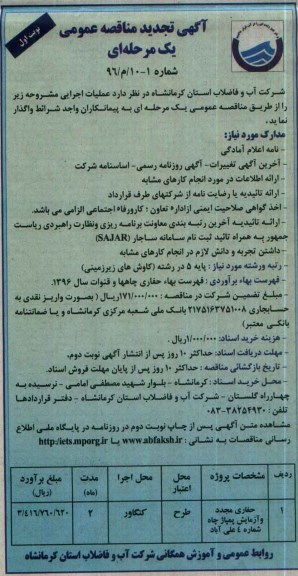 نوبت اول
آگهی تجدید مناقصه عمومی
یک مرحله‌ای
شماره ۱-۱۰/م/۹۶
شرکت آب و فاضلاب استان کرمانشاه در نظر دارد عملیات اجرایی مشروحه زیر
را از طریق مناقصه عمومی یک مرحله ای به پیمانکاران واجد شرائط واگذار
نماید.
مدارک مورد نیاز:
- نامه اعلام آمادگی
- آخرین آگهی تغییرات- آگهی روزنامه رسمی- اساسنامه شرکت
- ارائه اطلاعات در مورد انجام کارهای مشابه
- ارائه تائیدیه یا رضایت نامه از شرکتهای طرف قرارداد
- اخذ گواهی صلاحیت ایمنی ازاداره تعاون ؛ کارورفاه اجتماعی الزامی می باشد.
- ارائه تائیدیه آخرین رتبه بندی معاونت برنامه ریزی ونظارت راهبردی ریاست
جمهور به همراه تائید ثبت نام سامانه ساجار (SAJAR)
- داشتن تجربه و دانش لازم در انجام کارهای مشابه
- رتبه ورشته مورد نیاز: پایه ۵ در رشته (کاوش های زیرزمینی)
- فهرست بهاء برآوردی : فهرست بهاء حفاری چاهها و قنوات سال ۱۳۹۶.
- مبلغ تضمین شرکت در مناقصه : ۱۷۱/۰۰۰/۰۰۰ریال (بصورت واریز نقدی به
حسابجاری ۲۱۷۵۱۶۳۷۵۱۰۰۸ بانک ملی شعبه مرکزی کرمانشاه و یا ضمانتنامه
بانکی معتبر)
- هزینه خرید اسناد: ۱/۰۰۰/۰۰۰ریال.
- مهلت دریافت اسناد: حداکثر ۱۰ روز پس از انتشار آگهی نوبت دوم.
- تاریخ بازگشائی مناقصه : حداکثر ۱۰ روز پس از پایان مهلت فروش اسناد.
- محل خرید اسناد: کرمانشاه - بلوار شهید مصطفی امامی - نرسیده به
چهارراه گلستان - شرکت آب و فاضلاب استان کرمانشاه - دفتر قراردادها
تلفن : ۳۸۲۵۴۹۳۰-۰۸۳
مشاهده متن آگهی پس از چاپ نوبت دوم در روزنامه در پایگاه ملی اطلاع
رسانی مناقصات به نشانی : www.abfaksh.ir یا http:/iets.mporg.ir
ردیف مشخصات پروژه محل اعتبار محل اجرا مدت (ماه) مبلغ برآورد (ریال)
۱ حفاری مجدد وآزمایش پمپاژ چاه شماره ٤ علی آباد طرح کنگاور ۲ ۳/۴۱۶/۷۶۰/۶۲۰
روابط عمومی و آموزش همگانی شرکت آب و فاضلاب استان کرمانشاه